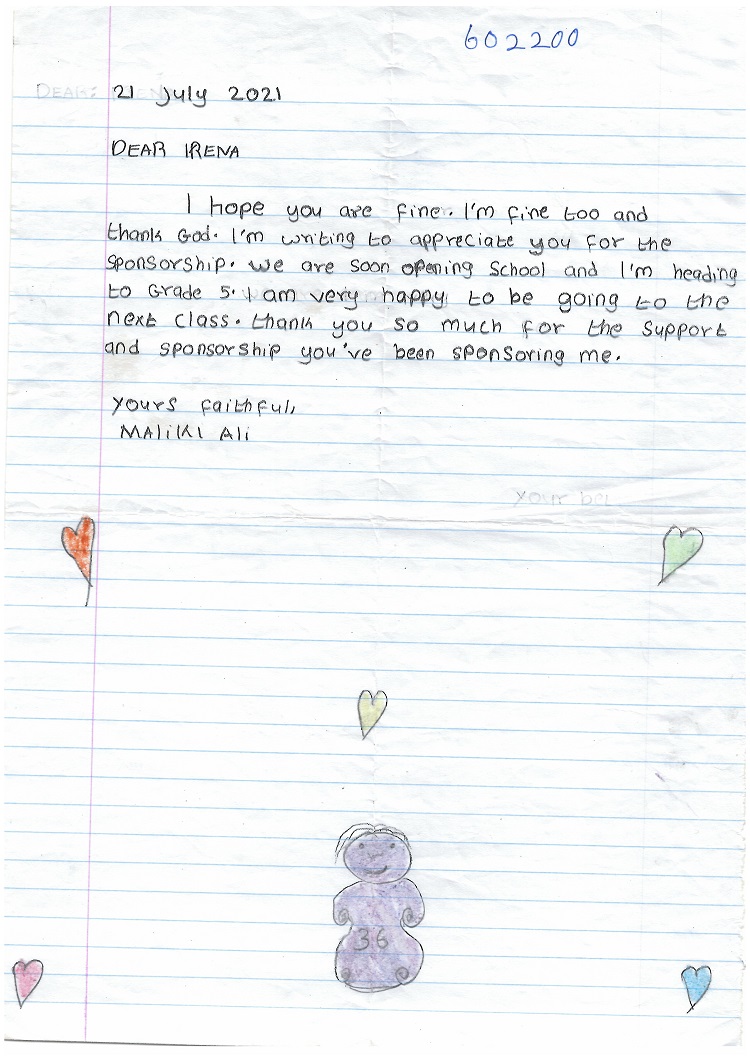 602200
DEAR: 21 July 2021
DEAR IRENA
I hope you are fine. I'm fine too and
thank God. I'm writing to appreciate you for the
sponsorship. We are soon opening School and I'm heading
to Grade 5. I am very happy to be going to the
next class. thank you so much for the support
and sponsorship you've been sponsoring me.
Your bel
yours faithful,
MALIKI Ali
36